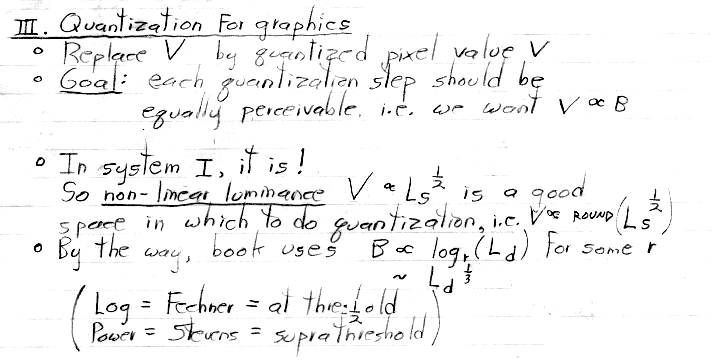 III. Quantization For graphics
° Replace V by quantized pixel value V
° Goal: each quantization step should be
equally perceivable. i.e. we want V ∝ B
° In system I, it is!
So non-linear luminance V ∝ Ls^1/2 is a good
space in which to do quantization, i.e. V ∝ ROUND(Ls^1/2)
° By the way, book uses B ∝ log_r(Ld) for some r
~ Ld^1/3
(Log = Fechner = at threshold
Power = Stevens^1/2 = suprathreshold)